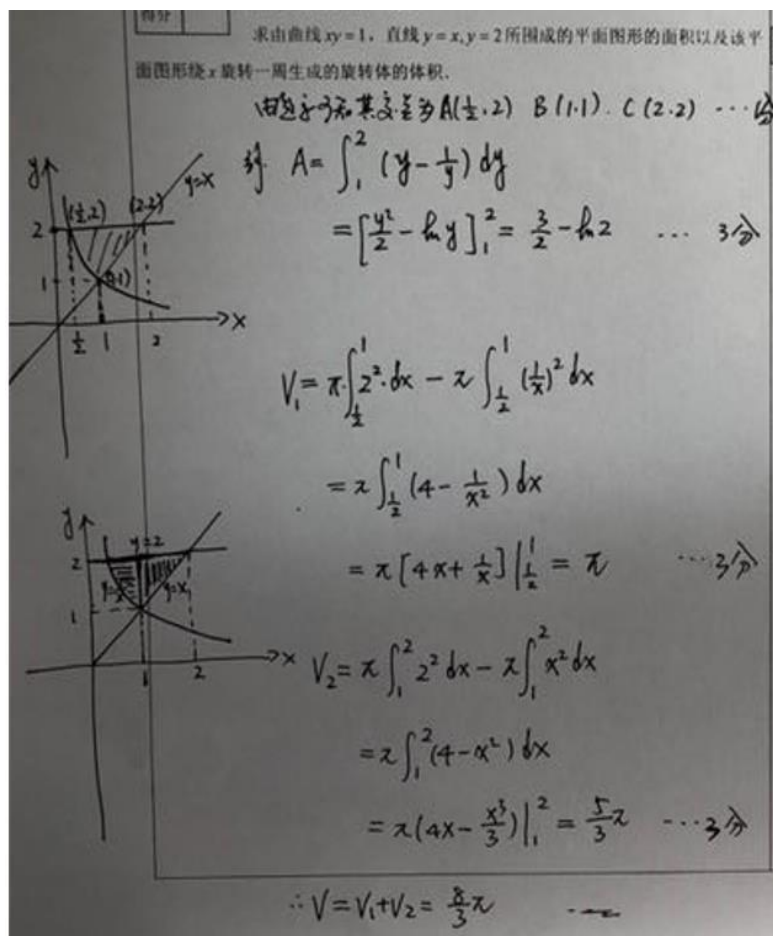 得分
求由曲线 xy=1，直线 y=x, y=2 所围成的平面图形的面积以及该平
面图形绕 x 旋转一周生成的旋转体的体积．
由题意可知其交点为 A(½,2) B(1.1). C(2.2) ···
A=∫₁² (y-1/y) dy
=[y²/2 - ln y]₁² = 3/2 - ln2 ··· 3分
y
y=x
(½,2) (2.2)
2
1 (1,1)
½ 1 2 x
V₁= π·∫_{½}^{1} 2²·dx - π ∫_{½}^{1} (1/x)² dx
= π ∫_{½}^{1} (4- 1/x²) dx
= π [4x+ 1/x] |_{½}^{1} = π ···3分
y
y=2
2
y=x
1
1 2 x
V₂= π ∫₁² 2² dx - π ∫₁² x² dx
= π ∫₁² (4-x²) dx
= π(4x- x³/3)|₁² = 5/3 π ···3分
∴ V=V₁+V₂= 8/3 π